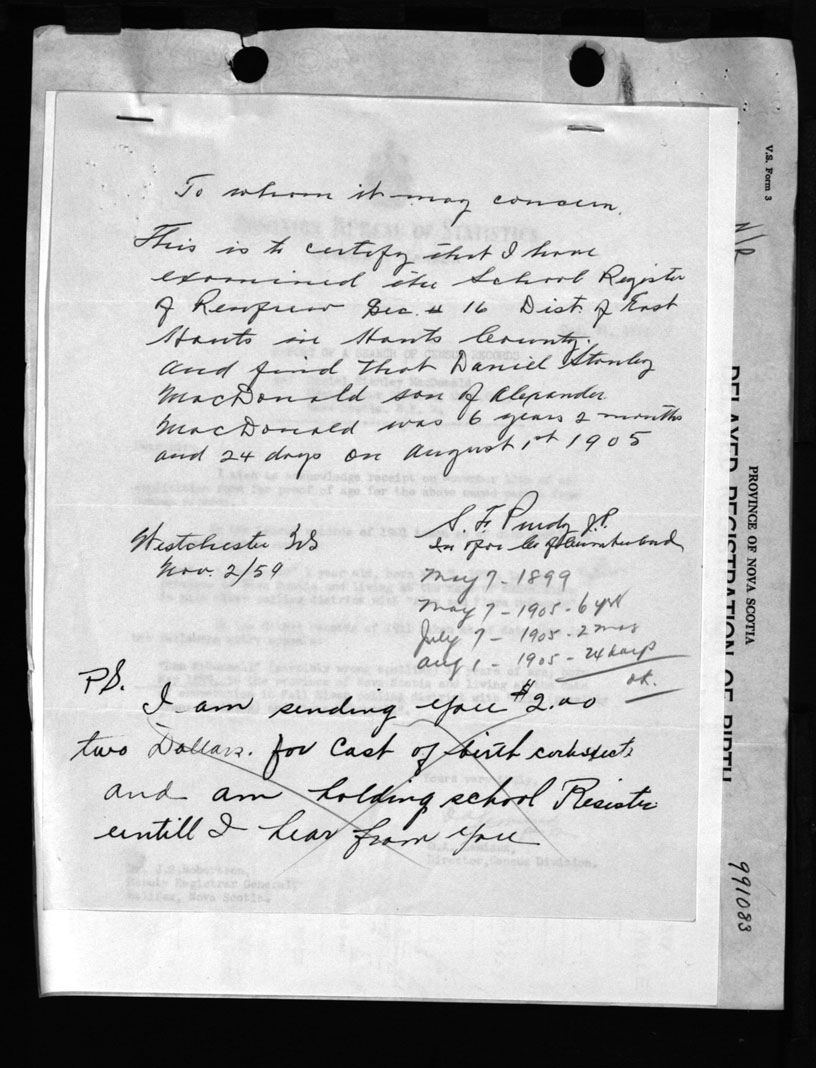 To whom it may concern.
This is to certify that I have
examined the School Register
of Renfrew Sec. # 16 Dist. of East
Hants in Hants County.
and find that Daniel Stanley
MacDonald son of Alexander
MacDonald was 6 years 2 months
and 24 days on August 1st 1905
S. F. Purdy J.P.
In & for Co. of Cumberland
Westchester NS
Nov. 2/59
May 7 - 1899
May 7 - 1905 - 6 yrs
July 7 - 1905 - 2 mos
Aug 1 - 1905 - 24 days
ok.
P.S.
I am sending you $2.00
two Dollars. for Cast of birth
and am holding school Resister
untill I hear from you
V.S. Form 3
N/R
PROVINCE OF NOVA SCOTIA
DELAYED REGISTRATION OF BIRTH
991083
DOMINION BUREAU OF STATISTICS
REPORT OF A SEARCH OF CENSUS RECORDS
Yours very truly,
Director, Census Division.
Mr. J.S. Robertson,
Deputy Registrar General,
Halifax, Nova Scotia.